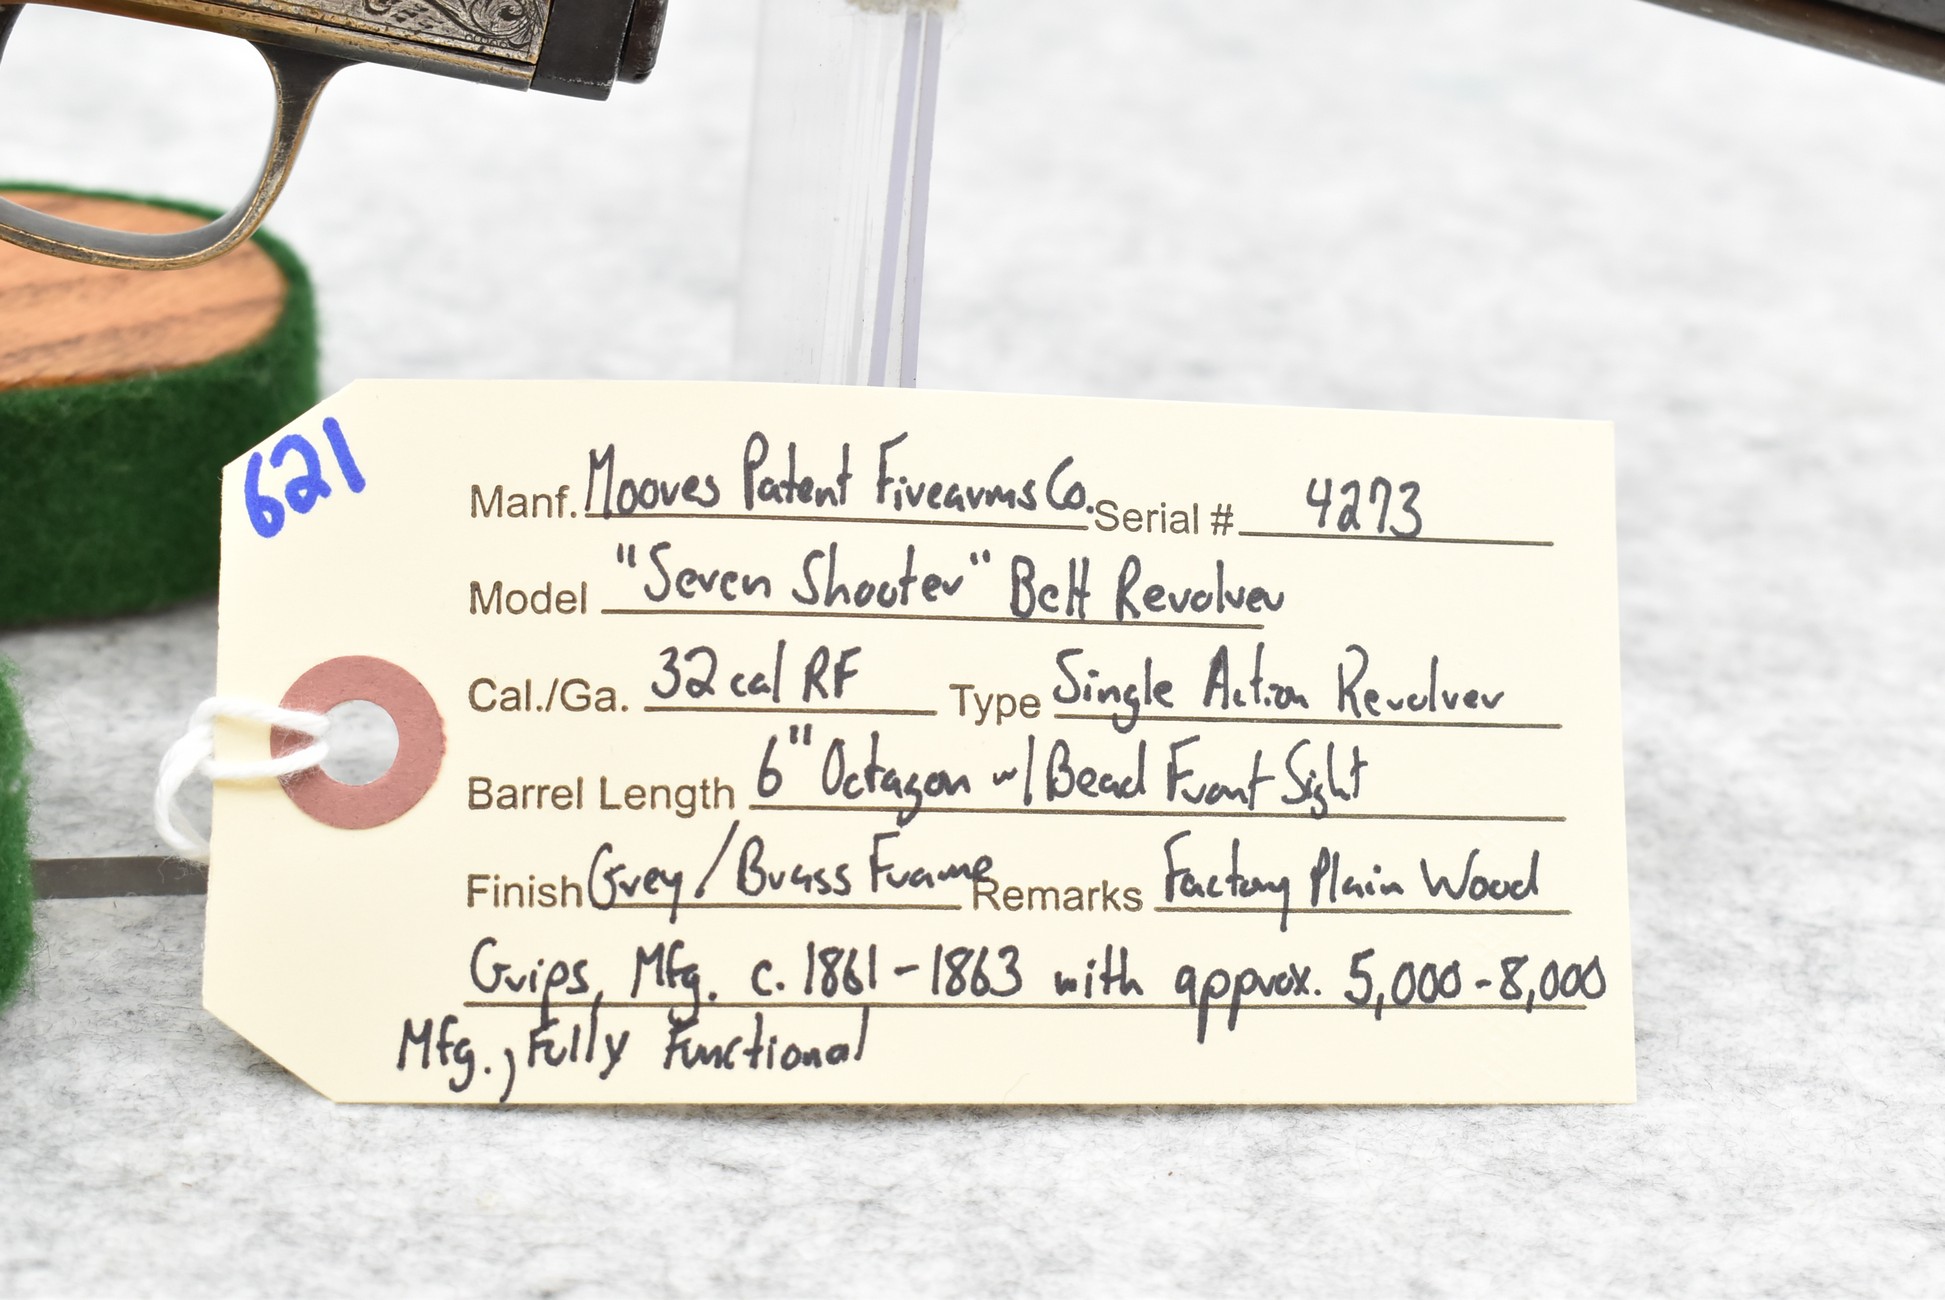 621
Manf. Moores Patent Firearms Co. Serial # 4273
Model "Seven Shooter" Belt Revolver
Cal./Ga. 32 cal RF Type Single Action Revolver
Barrel Length 6" Octagon w/ Bead Front Sight
Finish Grey/Brass Frame Remarks Factory Plain Wood
Grips, Mfg. c. 1861-1863 with approx. 5,000-8,000
Mfg., Fully Functional